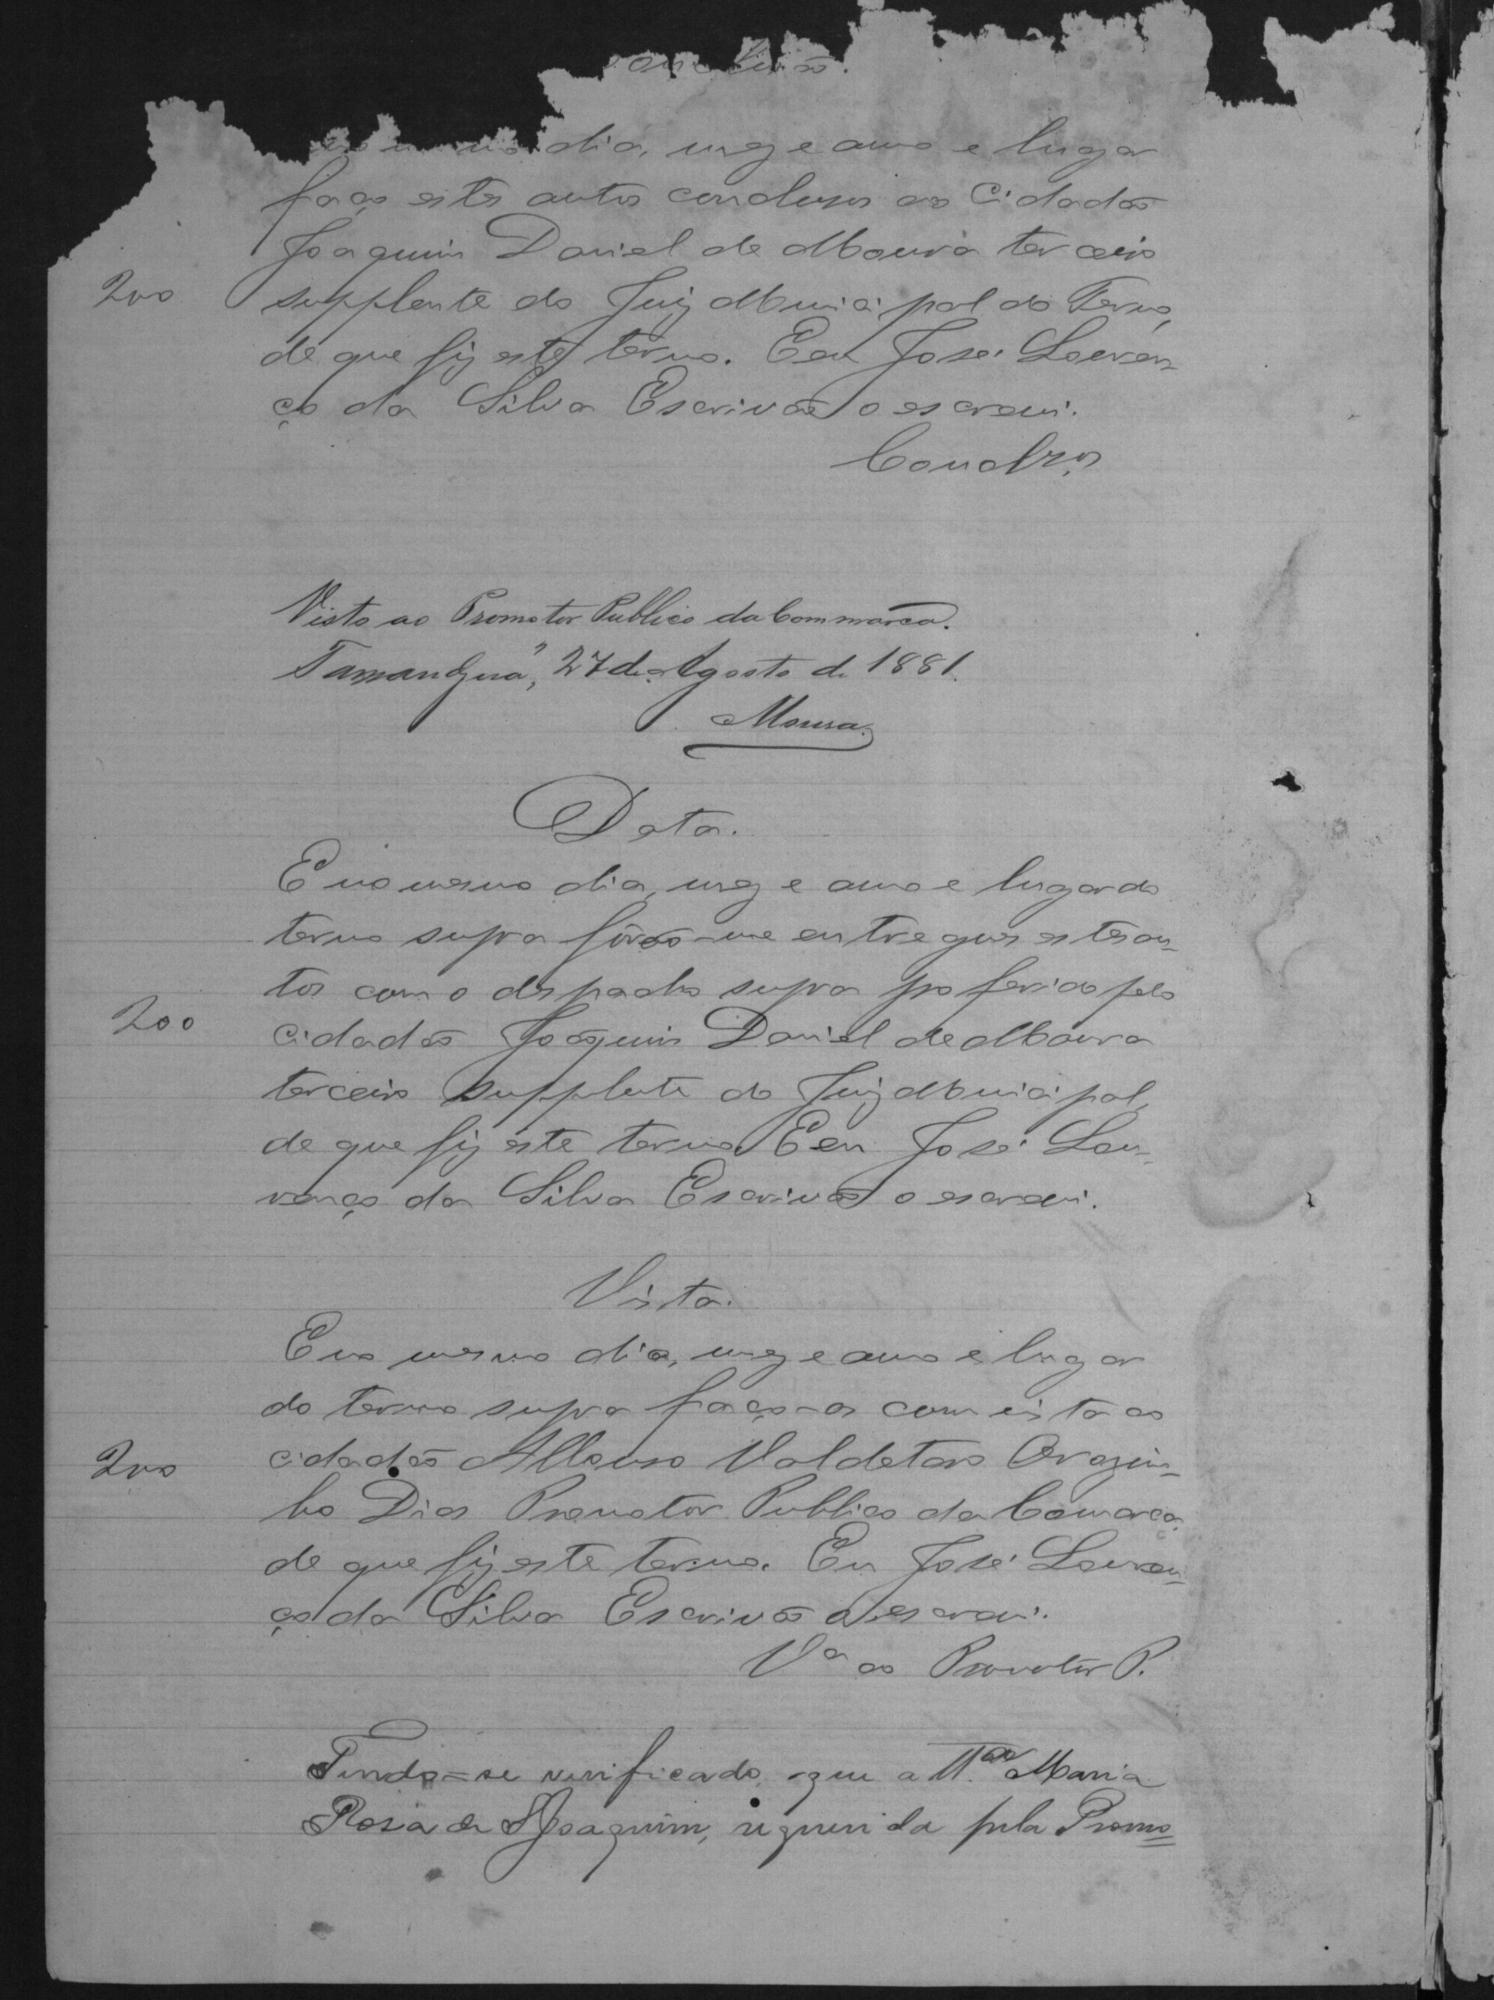 Conclusão.
mesmo dia, mez e anno e lugar
faço estes autos conclusos ao Cidadão
Joaquim Daniel de Moura terceiro
200
supplente do Juiz Municipal do Termo,
de que fiz este termo. E eu José Louren-
ço da Silva Escrivão o escrevi.
Conclzos
Visto ao Promotor Publico da Commarca.
27 de Agosto de 1881.
Moura.
Data.
E no mesmo dia, mez e anno e lugar do
termo supra forão-me entregues estes au-
tos com o despacho supra proferido pelo
200
cidadão Joaquim Daniel de Moura
terceiro supplente do Juiz Municipal,
de que fiz este termo E eu José Lou-
renço da Silva Escrivão o escrevi.
Vista.
E no mesmo dia, mez e anno e lugar
do termo supra faço-os com vista ao
200
cidadão Affonso Valdetaro
Dias Promotor Publico da Comarca,
de que fiz este termo. Eu José Louren-
ço da Silva Escrivão o escrevi.
Vª ao Promotor P.
Tendo-se verificado, que a Maria
Rosa de S Joaquim, requerida pela Promo=